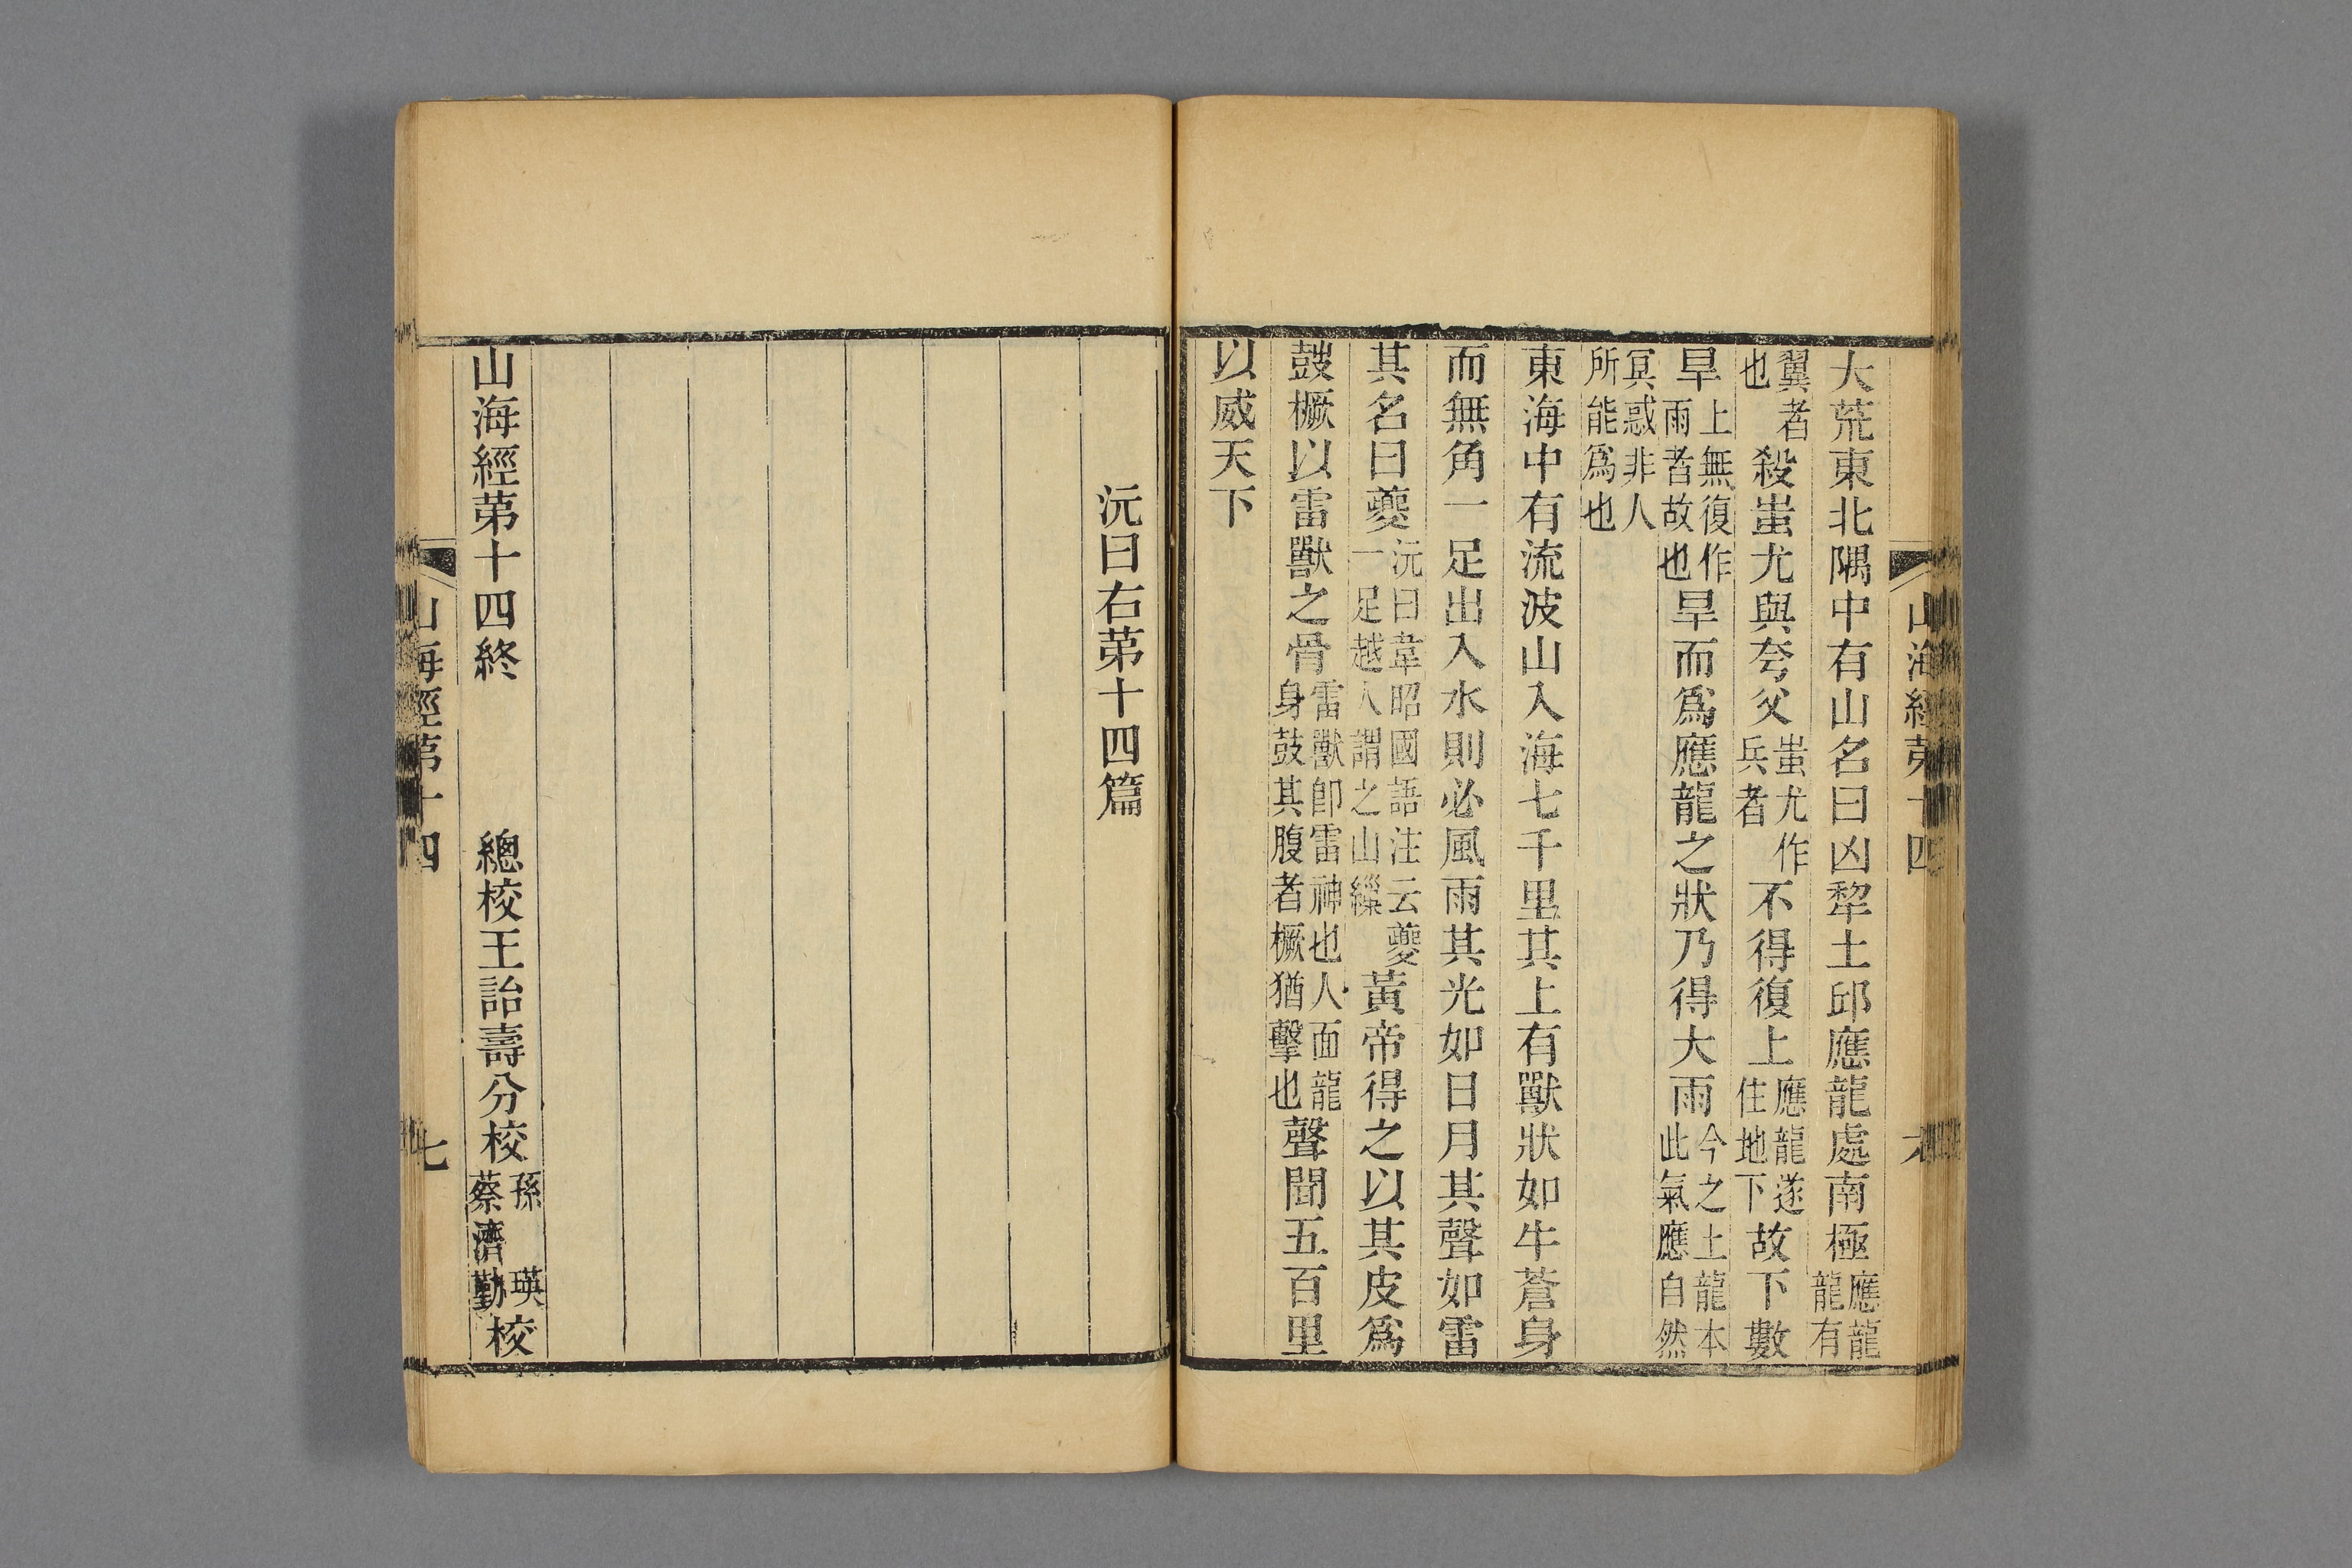 山海經第十四
大荒東北隅中有山名曰凶犂土邱應龍處南極應龍龍有
翼者也殺蚩尤與夸父蚩尤作兵者不得復上應龍遂住地下故下數
旱上無復作雨者故也旱而爲應龍之狀乃得大雨今之土龍本此氣應自然
冥惑非人所能爲也
東海中有流波山入海七千里其上有獸狀如牛蒼身
而無角一足出入水則必風雨其光如日月其聲如雷
其名曰夔沅曰韋昭國語注云夔一足越人謂之山繅黃帝得之以其皮爲
鼓橛以雷獸之骨雷獸卽雷神也人面龍身鼓其腹者橛猶擊也聲聞五百里
以威天下
沅曰右第十四篇
山海經第十四終 總校王詒壽分校孫瑛蔡濟勤校
山海經第十四 七